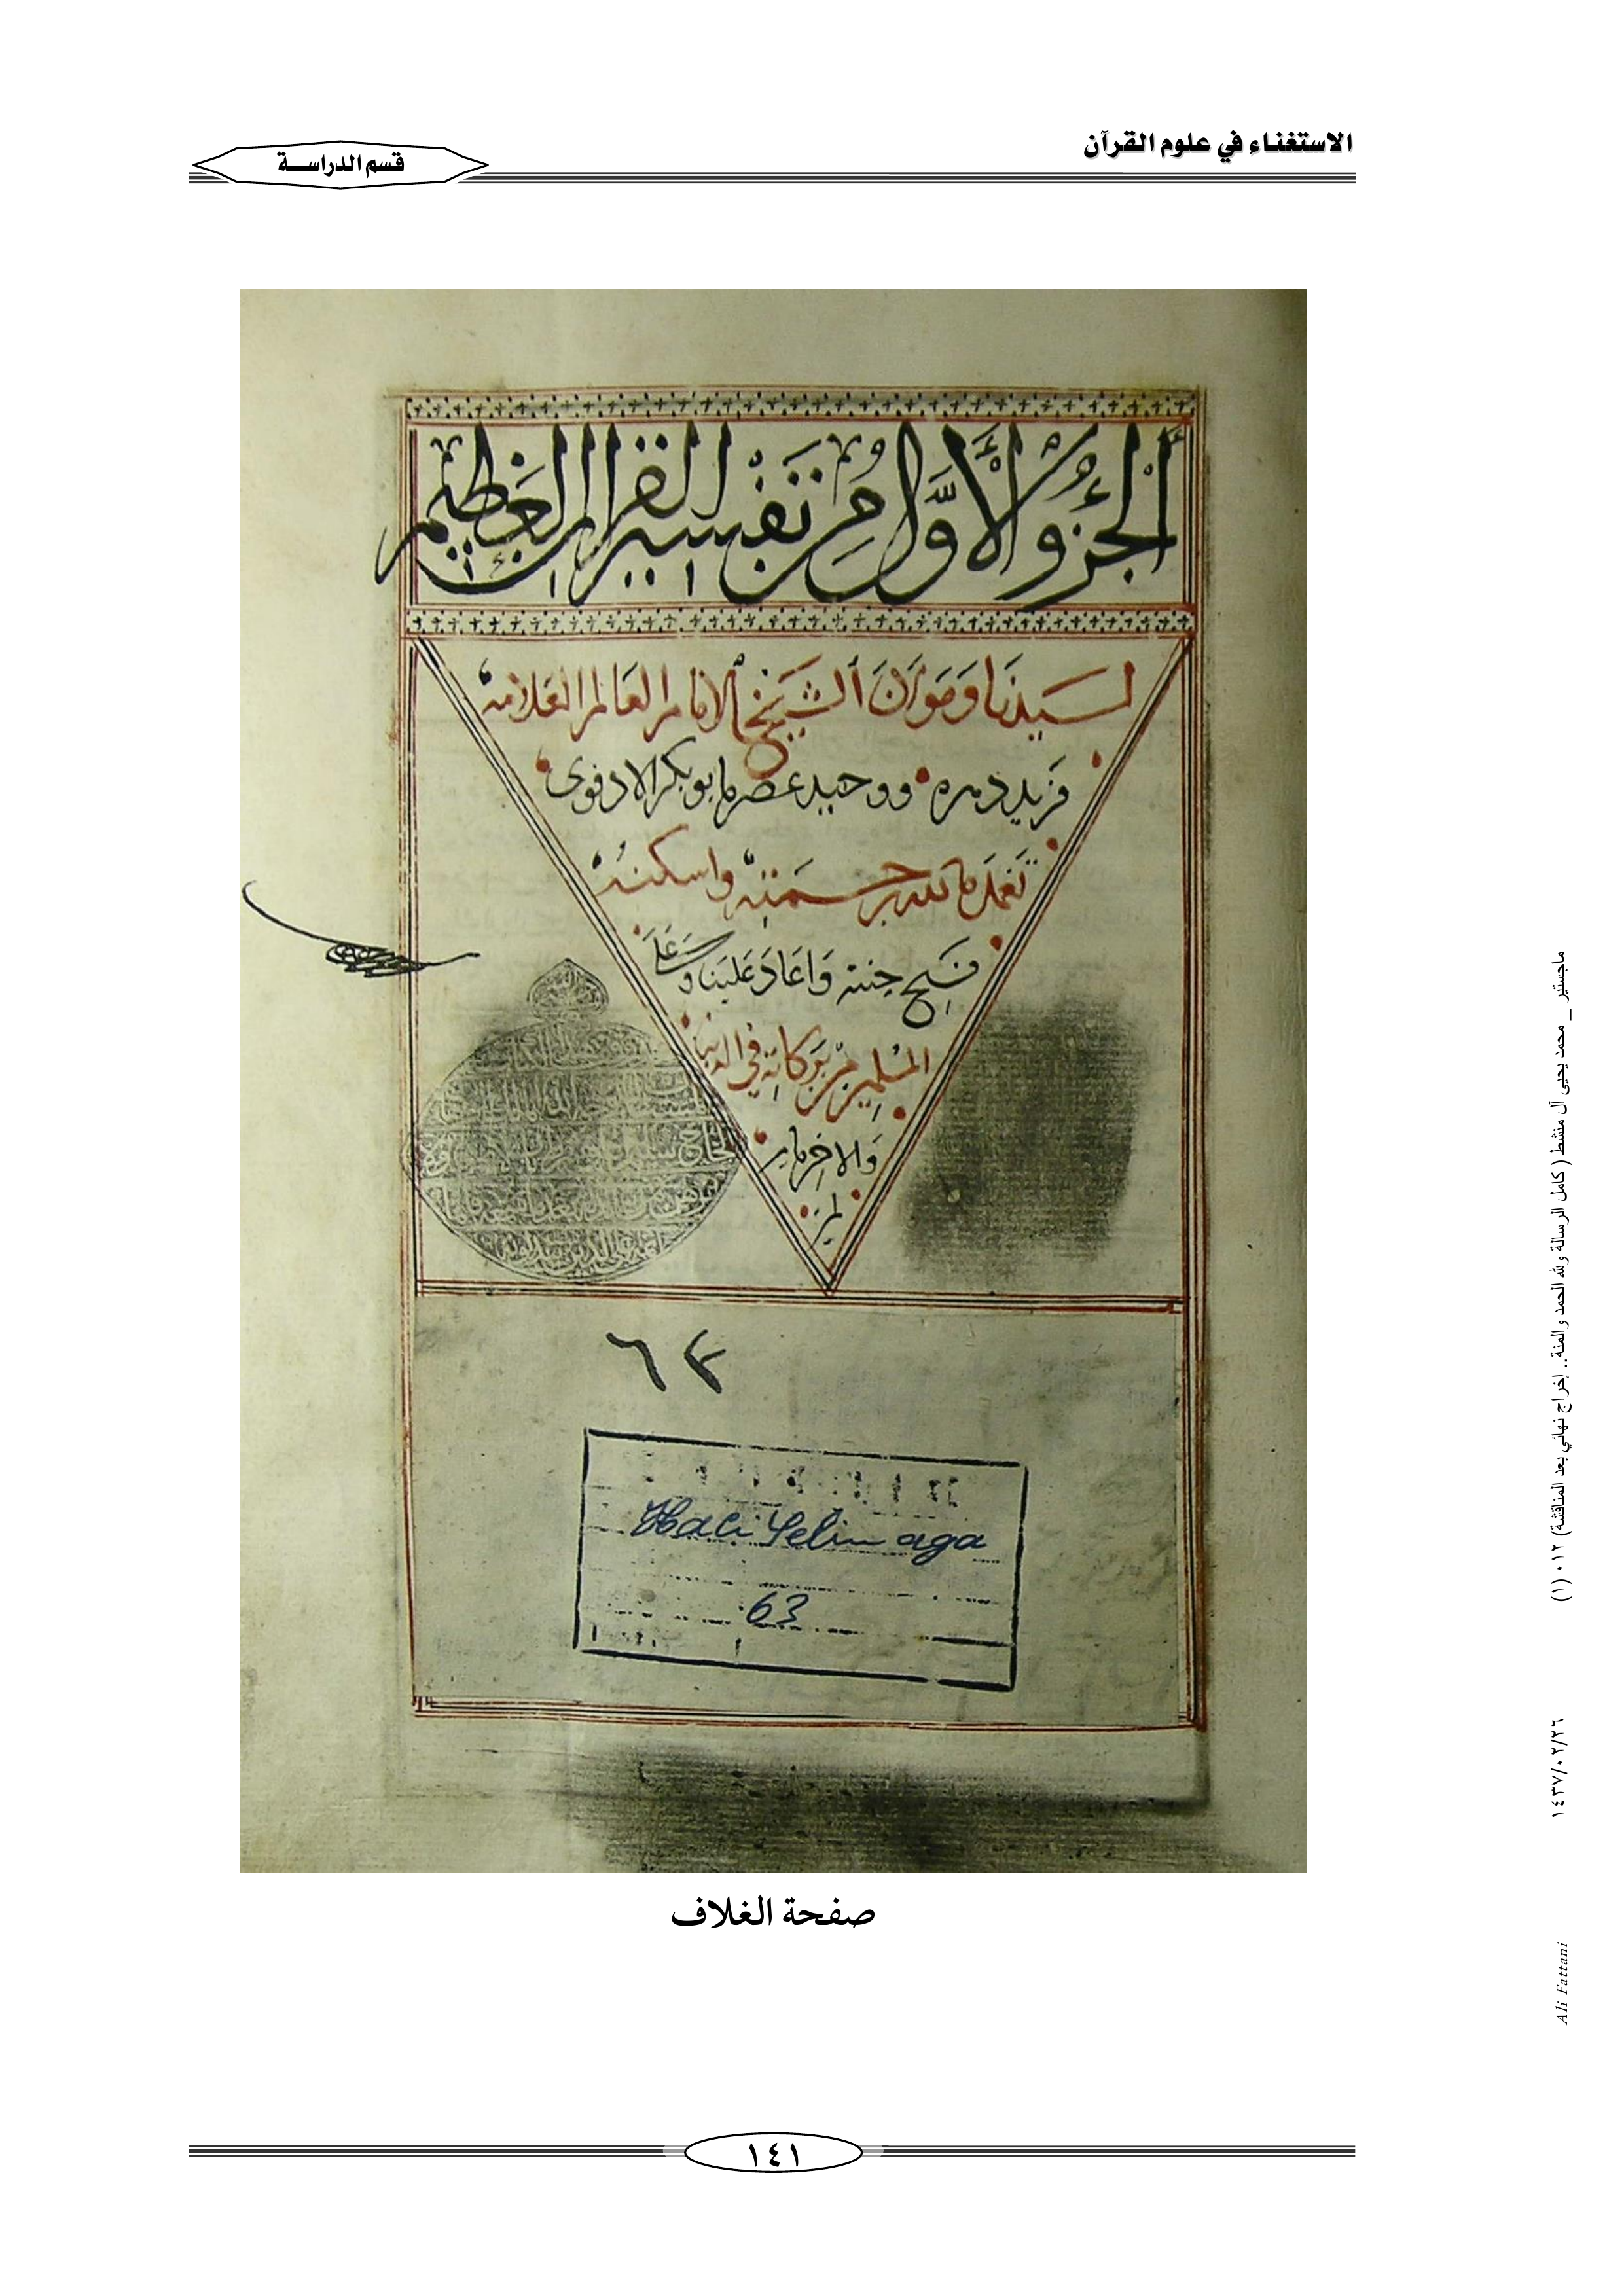 الاستغناء في علوم القرآن
قسم الدراســة
الجزو الأول من تفسير القران العظيم
لسيدنا ومولانا الشيخ الامام العالم العلامة
فريد دهره ووحيد عصره ابو بكر الادفوى
تغمده الله برحمته واسكنه
فسيح جنته واعاد علينا وعلى
المسلمين من بركاته في الدنيا
والاخره امين
٦٣
Haci Selim aga
63
صفحة الغلاف
١٤١
ماجستير _ محمد يحيى آل منشط (كامل الرسالة ولله الحمد والمنة.. إخراج نهائي بعد المناقشة) ٠١٢ (١)
١٤٣٧/٠٢/٢٦
Ali Fattani